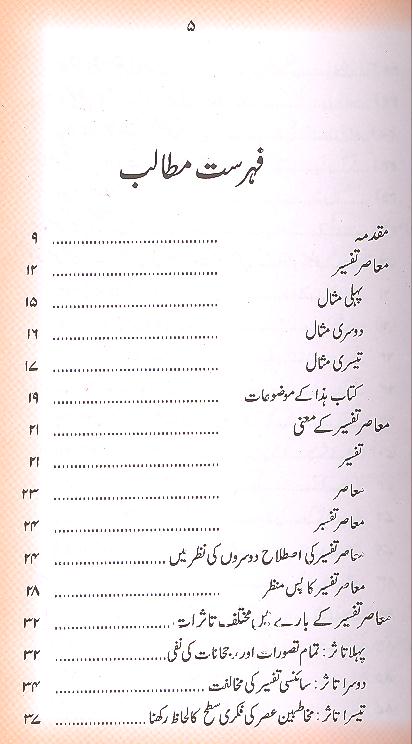 ۵
فہرست مطالب
مقدمہ ........................................ ۹
معاصر تفسیر ........................................ ۱۲
پہلی مثال ........................................ ۱۵
دوسری مثال ........................................ ۱۶
تیسری مثال ........................................ ۱۷
کتاب ہذا کے موضوعات ........................................ ۱۹
معاصر تفسیر کے معنی ........................................ ۲۱
تفسیر ........................................ ۲۱
معاصر ........................................ ۲۳
معاصر تفسیر ........................................ ۲۴
معاصر تفسیر کی اصطلاح دوسروں کی نظر میں ........................................ ۲۴
معاصر تفسیر کا پس منظر ........................................ ۲۸
معاصر تفسیر کے بارے میں مختلف تاثرات ........................................ ۳۲
پہلا تاثر: تمام تصورات اور رجحانات کی نفی ........................................ ۳۲
دوسرا تاثر: سائنسی تفسیر کی مخالفت ........................................ ۳۴
تیسرا تاثر: مخاطبین عصر کی فکری سطح کا لحاظ رکھنا ........................................ ۳۷